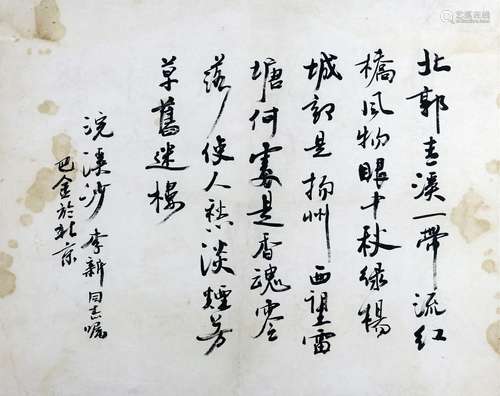 北郭青溪一帶流紅
橋風物眼中秋綠楊
城郭是揚州西望雷
塘何處是香魂零
落使人愁淡煙芳
草舊迷樓
浣溪沙 李新同志囑
巴金於北京